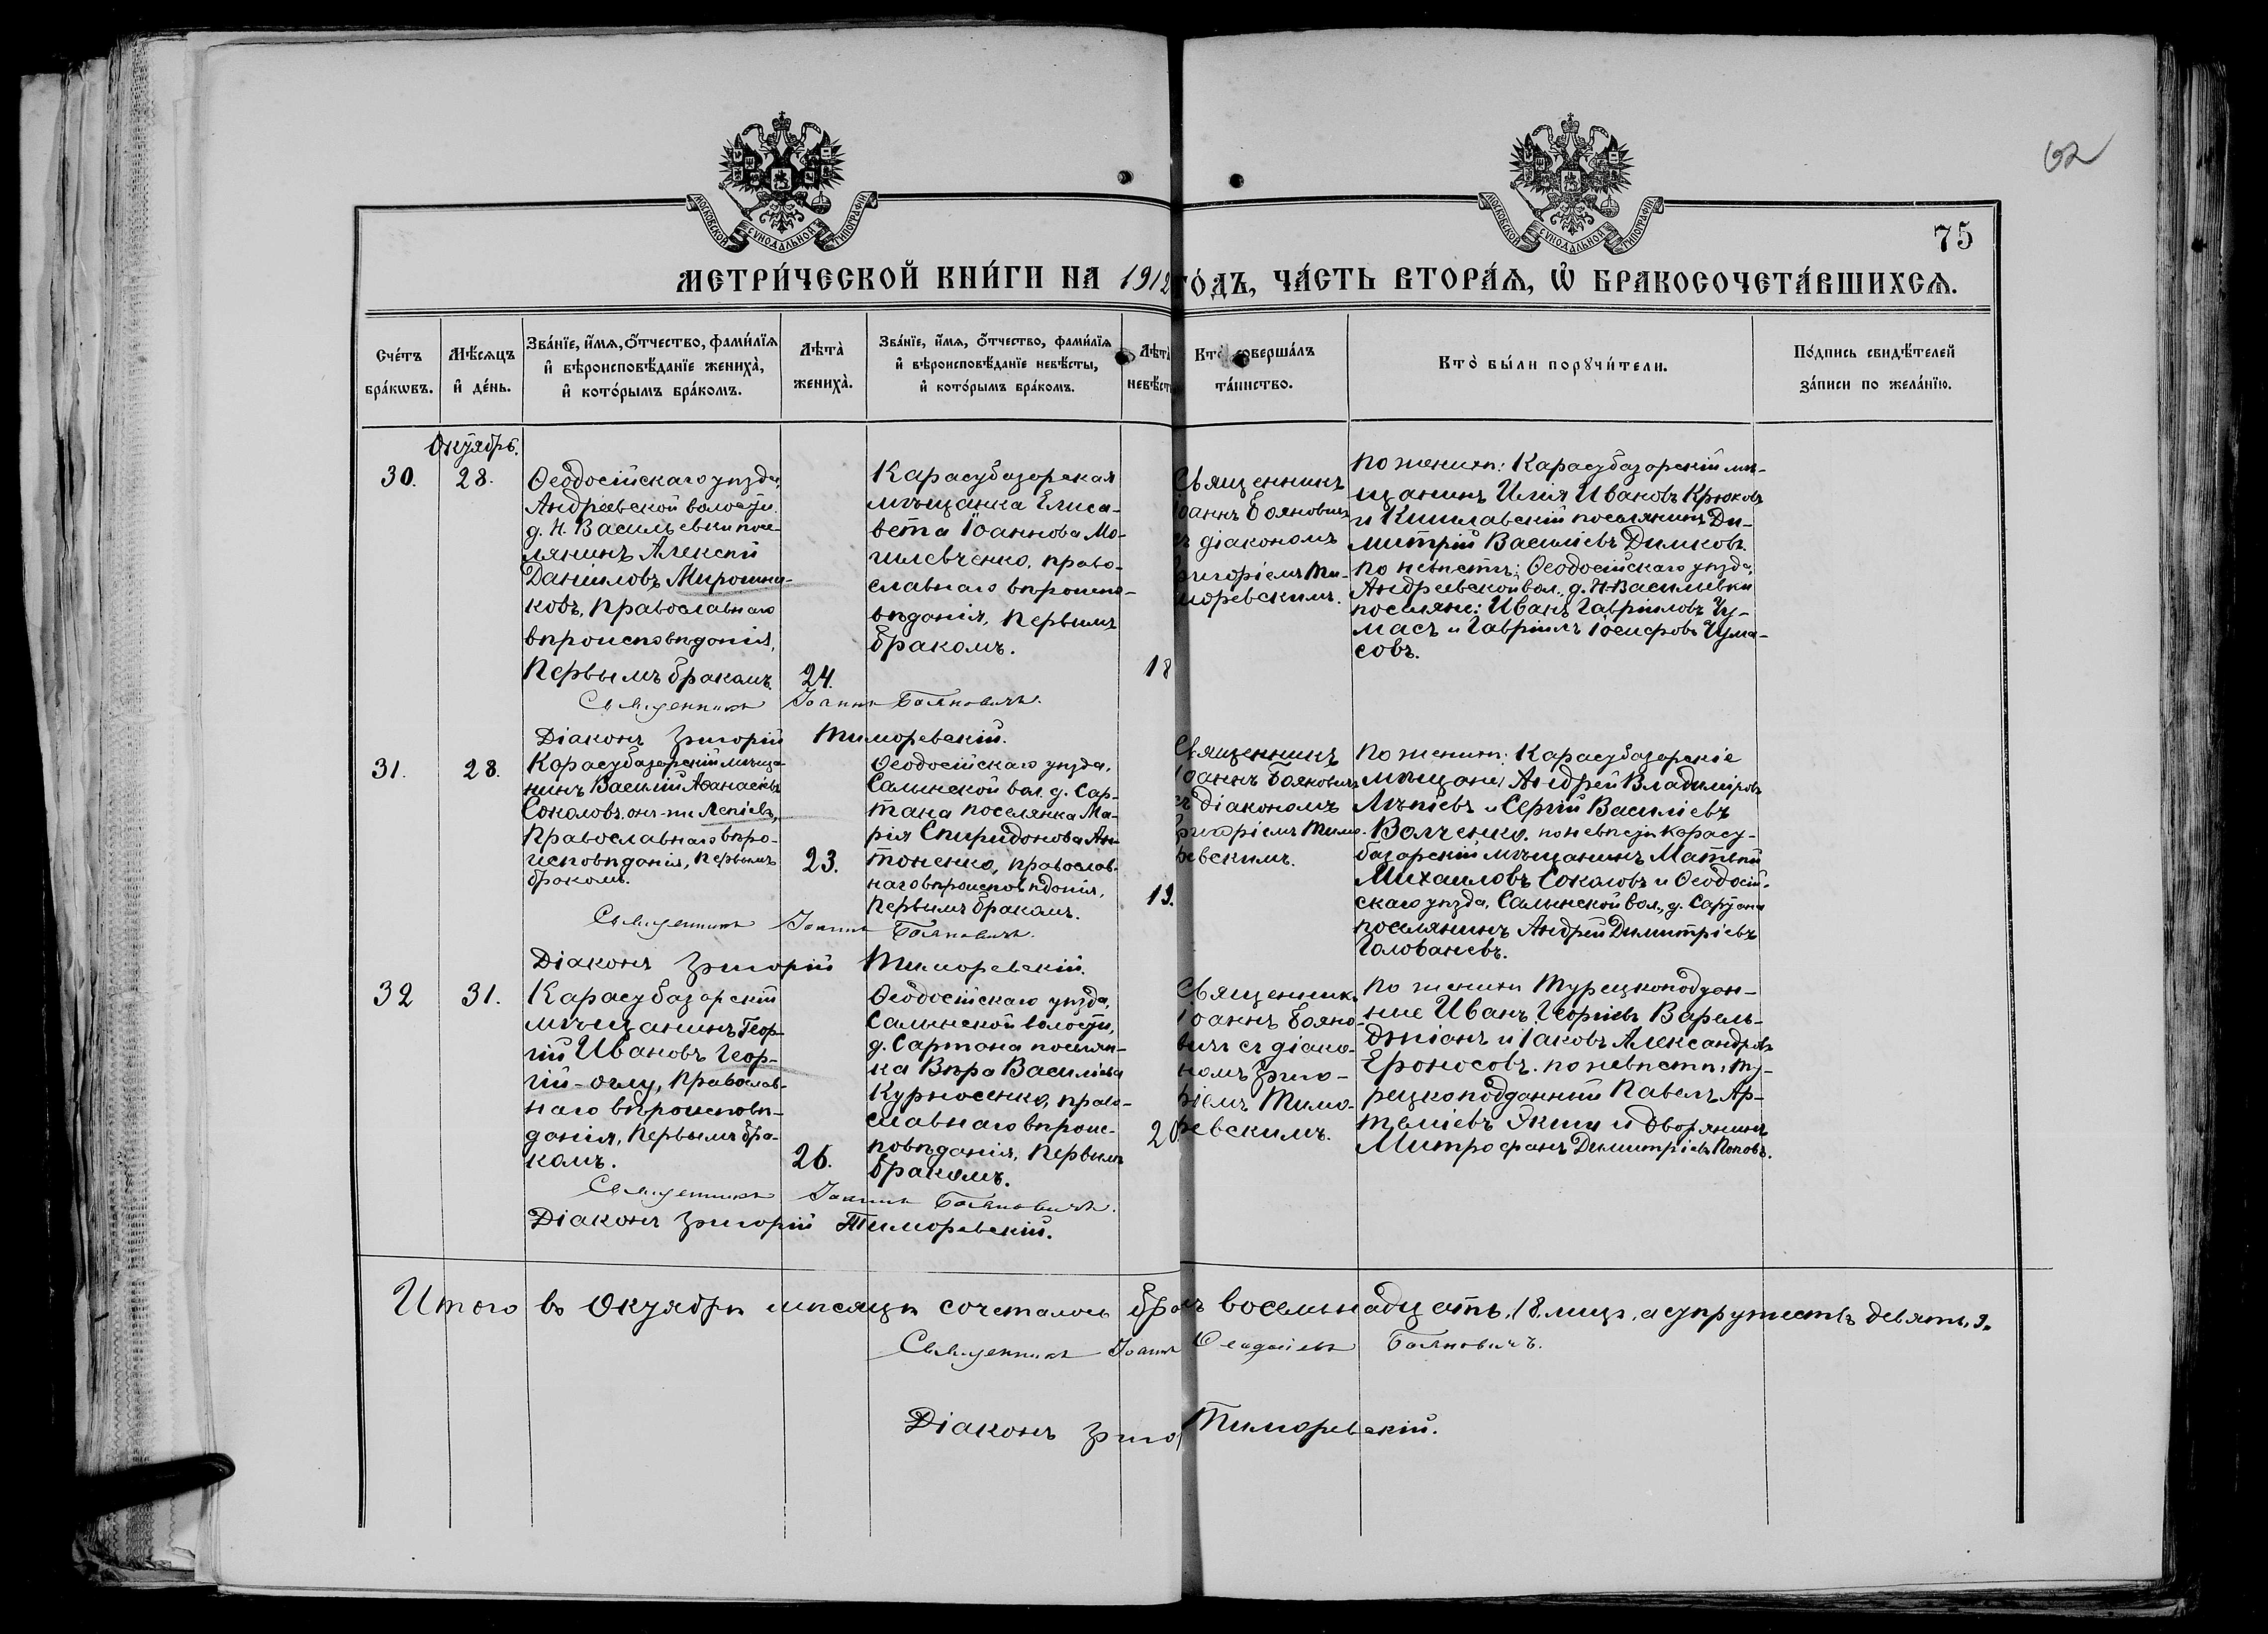 62
75
МОСКОВСКОЙ СѴНОДАЛЬНОЙ ТИПОГРАФІИ
МОСКОВСКОЙ СѴНОДАЛЬНОЙ ТИПОГРАФІИ
МЕТРИ́ЧЕСКОЙ КНИ́ГИ НА 1912 ГО́ДЪ, ЧА́СТЬ ВТОРА́Ѧ, Ѡ҆ БРАКОСОЧЕТА́ВШИХСѦ.
Сче́тъ
бра́кѡвъ.
Мѣ́сѧцъ
и҆ де́нь.
Зва́нїе, и҆́мѧ, ѻ҆́тчество, фами́лїѧ
и҆ вѣроисповѣ́данїе жениха̀,
и҆ кото́рымъ бра́комъ.
Лѣта̀
жениха̀.
Зва́нїе, и҆́мѧ, ѻ҆́тчество, фами́лїѧ
и҆ вѣроисповѣ́данїе невѣ́сты,
и҆ кото́рымъ бра́комъ.
Лѣта̀
невѣ́ст
Кто̀ соверша́лъ
та́инство.
Кто̀ бы́ли порꙋчи́тели.
По́дпись свидѣ́телей
за́писи по жела́нїю.
Октябрь.
30.
28.
Ѳеодосійскаго уѣзда,
Андреевской волости
д. Н. Васильевки посе-
лянинъ Алексѣй
Даніиловъ Мирошни-
ковъ, православнаго
вѣроисповѣданія,
первымъ бракомъ.
24.
Карасубазарская
мѣщанка Елиса-
вета Іоаннова Мо-
гилевченко, право-
славнаго вѣроиспо-
вѣданія, первымъ
бракомъ.
18
Священникъ
Іоаннъ Бояновичъ
съ діакономъ
Григоріемъ Ти-
моревскимъ.
По женихѣ: Карасубазарскій мѣ-
щанинъ Илія Ивановъ Крюковъ
и Кишлавскій поселянинъ Ди-
митрій Василіевъ Димковъ.
По невѣстѣ: Ѳеодосійскаго уѣзда,
Андреевской вол., д. Н-Васильевки
поселяне: Иванъ Гавріиловъ Чу-
масъ и Гавріилъ Іосифовъ Чума-
совъ.
Священникъ Іоаннъ Бояновичъ.
Діаконъ Григорій Тиморевскій.
31.
28.
Карасубазарскій мѣща-
нинъ Василій Аѳанасіевъ
Соколовъ, онъ-же Лепіевъ,
православнаго вѣро-
исповѣданія, первымъ
бракомъ.
23.
Ѳеодосійскаго уѣзда,
Салынской вол. д. Сар-
тана поселянка Ма-
рія Спиридонова Ан-
тоненко, православ-
наго вѣроисповѣданія,
первымъ бракомъ.
19.
Священникъ
Іоаннъ Бояновичъ
съ діакономъ
Григоріемъ Тимо-
ревскимъ.
По женихѣ: Карасубазарскіе
мѣщане, Андрей Владиміровъ
и Сергій Василіевъ
Волченко. по невѣстѣ Карасу-
базарскій мѣщанинъ Матвѣй
Михаиловъ Соколовъ и Ѳеодосій-
скаго уѣзда, Салынской вол., д. Сартана
поселянинъ Андрей Димитріевъ
Голованевъ.
Священникъ Іоаннъ Бояновичъ.
Діаконъ Григорій Тиморевскій.
32
31.
Карасубазарскій
мѣщанинъ Геор-
гій Ивановъ Геор-
гій-оглу, православ-
наго вѣроисповѣ-
данія, первымъ бра-
комъ.
26.
Ѳеодосійскаго уѣзда,
Салынской волости,
д. Сартана поселян-
ка Вѣра Василіева
Курносенко, право-
славнаго вѣроис-
повѣданія, первымъ
бракомъ.
20
Священникъ
Іоаннъ Бояно-
вичъ съ діако-
номъ Григо-
ріемъ Тимо-
ревскимъ.
По женихѣ Турецкоподдан-
ные Иванъ Георгіевъ
и Іаковъ Александровъ
Ероносовъ. по невѣстѣ: Ту-
рецкоподданный Павелъ Ар-
теміевъ Экши и дворянинъ
Митрофанъ Димитріевъ Поповъ.
Священникъ Іоаннъ Бояновичъ.
Діаконъ Григорій Тиморевскій.
Итого въ Октябрѣ мѣсяцѣ сочеталось бра мъ восемьнадцать, 18. лицъ, а супружествъ девять, 9.
Священникъ Іоаннъ Бояновичъ.
Діаконъ Григо Тиморевскій.